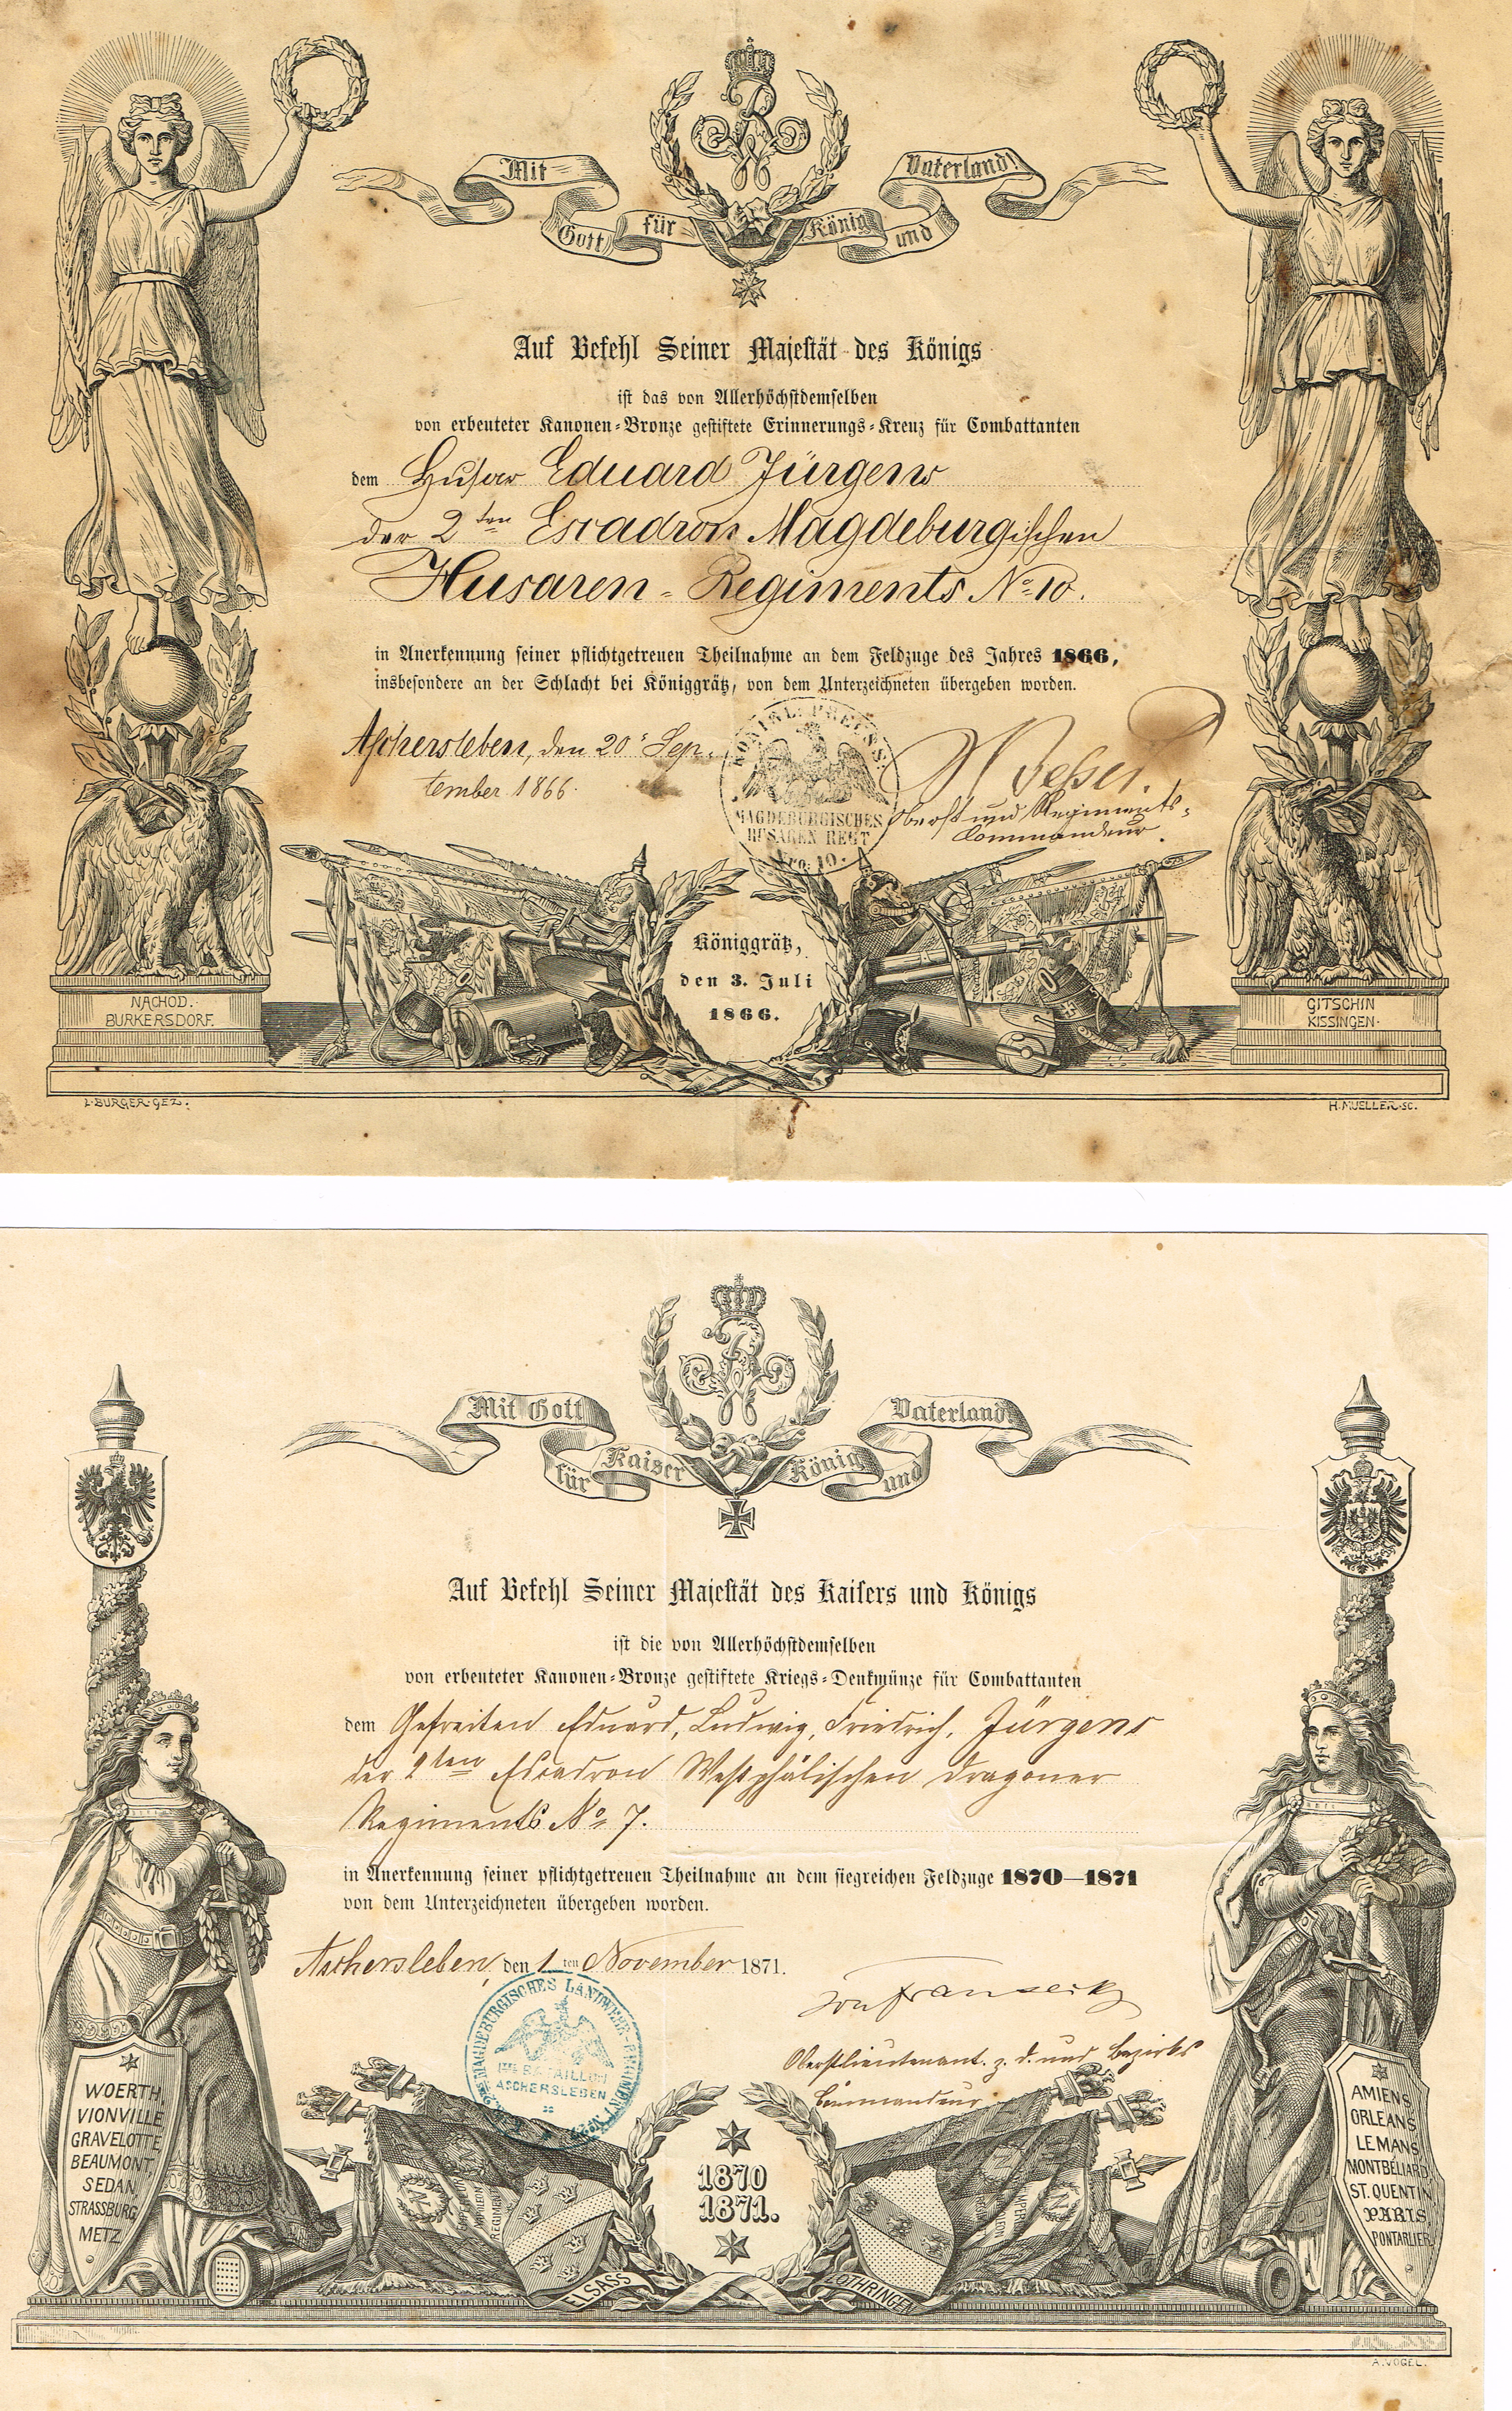 Mit Gott für König und Vaterland!
Auf Befehl Seiner Majestät des Königs
ist das von Allerhöchstdemselben
von erbeuteter Kanonen-Bronze gestiftete Erinnerungs-Kreuz für Combattanten
dem Husar Eduard Jürgens
der 2ten Escadron Magdeburgischen
Husaren-Regiments No 10.
in Anerkennung seiner pflichtgetreuen Theilnahme an dem Feldzuge des Jahres 1866,
insbesondere an der Schlacht bei Königgrätz, von dem Unterzeichneten übergeben worden.
Aschersleben, den 20t Sep-
tember 1866.
KÖNIGL. PREUSS.
MAGDEBURGISCHES
HUSAREN REGT
Nro: 10.
Oberst und Regiments-
Commandeur.
Königgrätz,
den 3. Juli
1866.
NACHOD.
BURKERSDORF.
GITSCHIN
KISSINGEN.
L. BURGER. GEZ.
H. MUELLER. SC.
Mit Gott für Kaiser König und Vaterland!
Auf Befehl Seiner Majestät des Kaisers und Königs
ist die von Allerhöchstdemselben
von erbeuteter Kanonen-Bronze gestiftete Kriegs-Denkmünze für Combattanten
dem Gefreiten Eduard, Ludwig, Friedrich, Jürgens
der 2ten Escadron Westphälischen Dragoner
Regiments No 7.
in Anerkennung seiner pflichtgetreuen Theilnahme an dem siegreichen Feldzuge 1870—1871
von dem Unterzeichneten übergeben worden.
Aschersleben, den 1ten November 1871.
MAGDEBURGISCHES LANDWEHR-REGIMENT
BATAILLON
ASCHERSLEBEN
von Fransecky
Oberstlieutenant z. D. und Bezirks
Commandeur
WOERTH,
VIONVILLE
GRAVELOTTE,
BEAUMONT,
SEDAN,
STRASSBURG,
METZ.
1870
1871.
ELSASS
LOTHRINGEN
AMIENS,
ORLEANS,
LE MANS,
MONTBÉLIARD,
ST. QUENTIN,
PARIS,
PONTARLIER.
A. VOGEL.